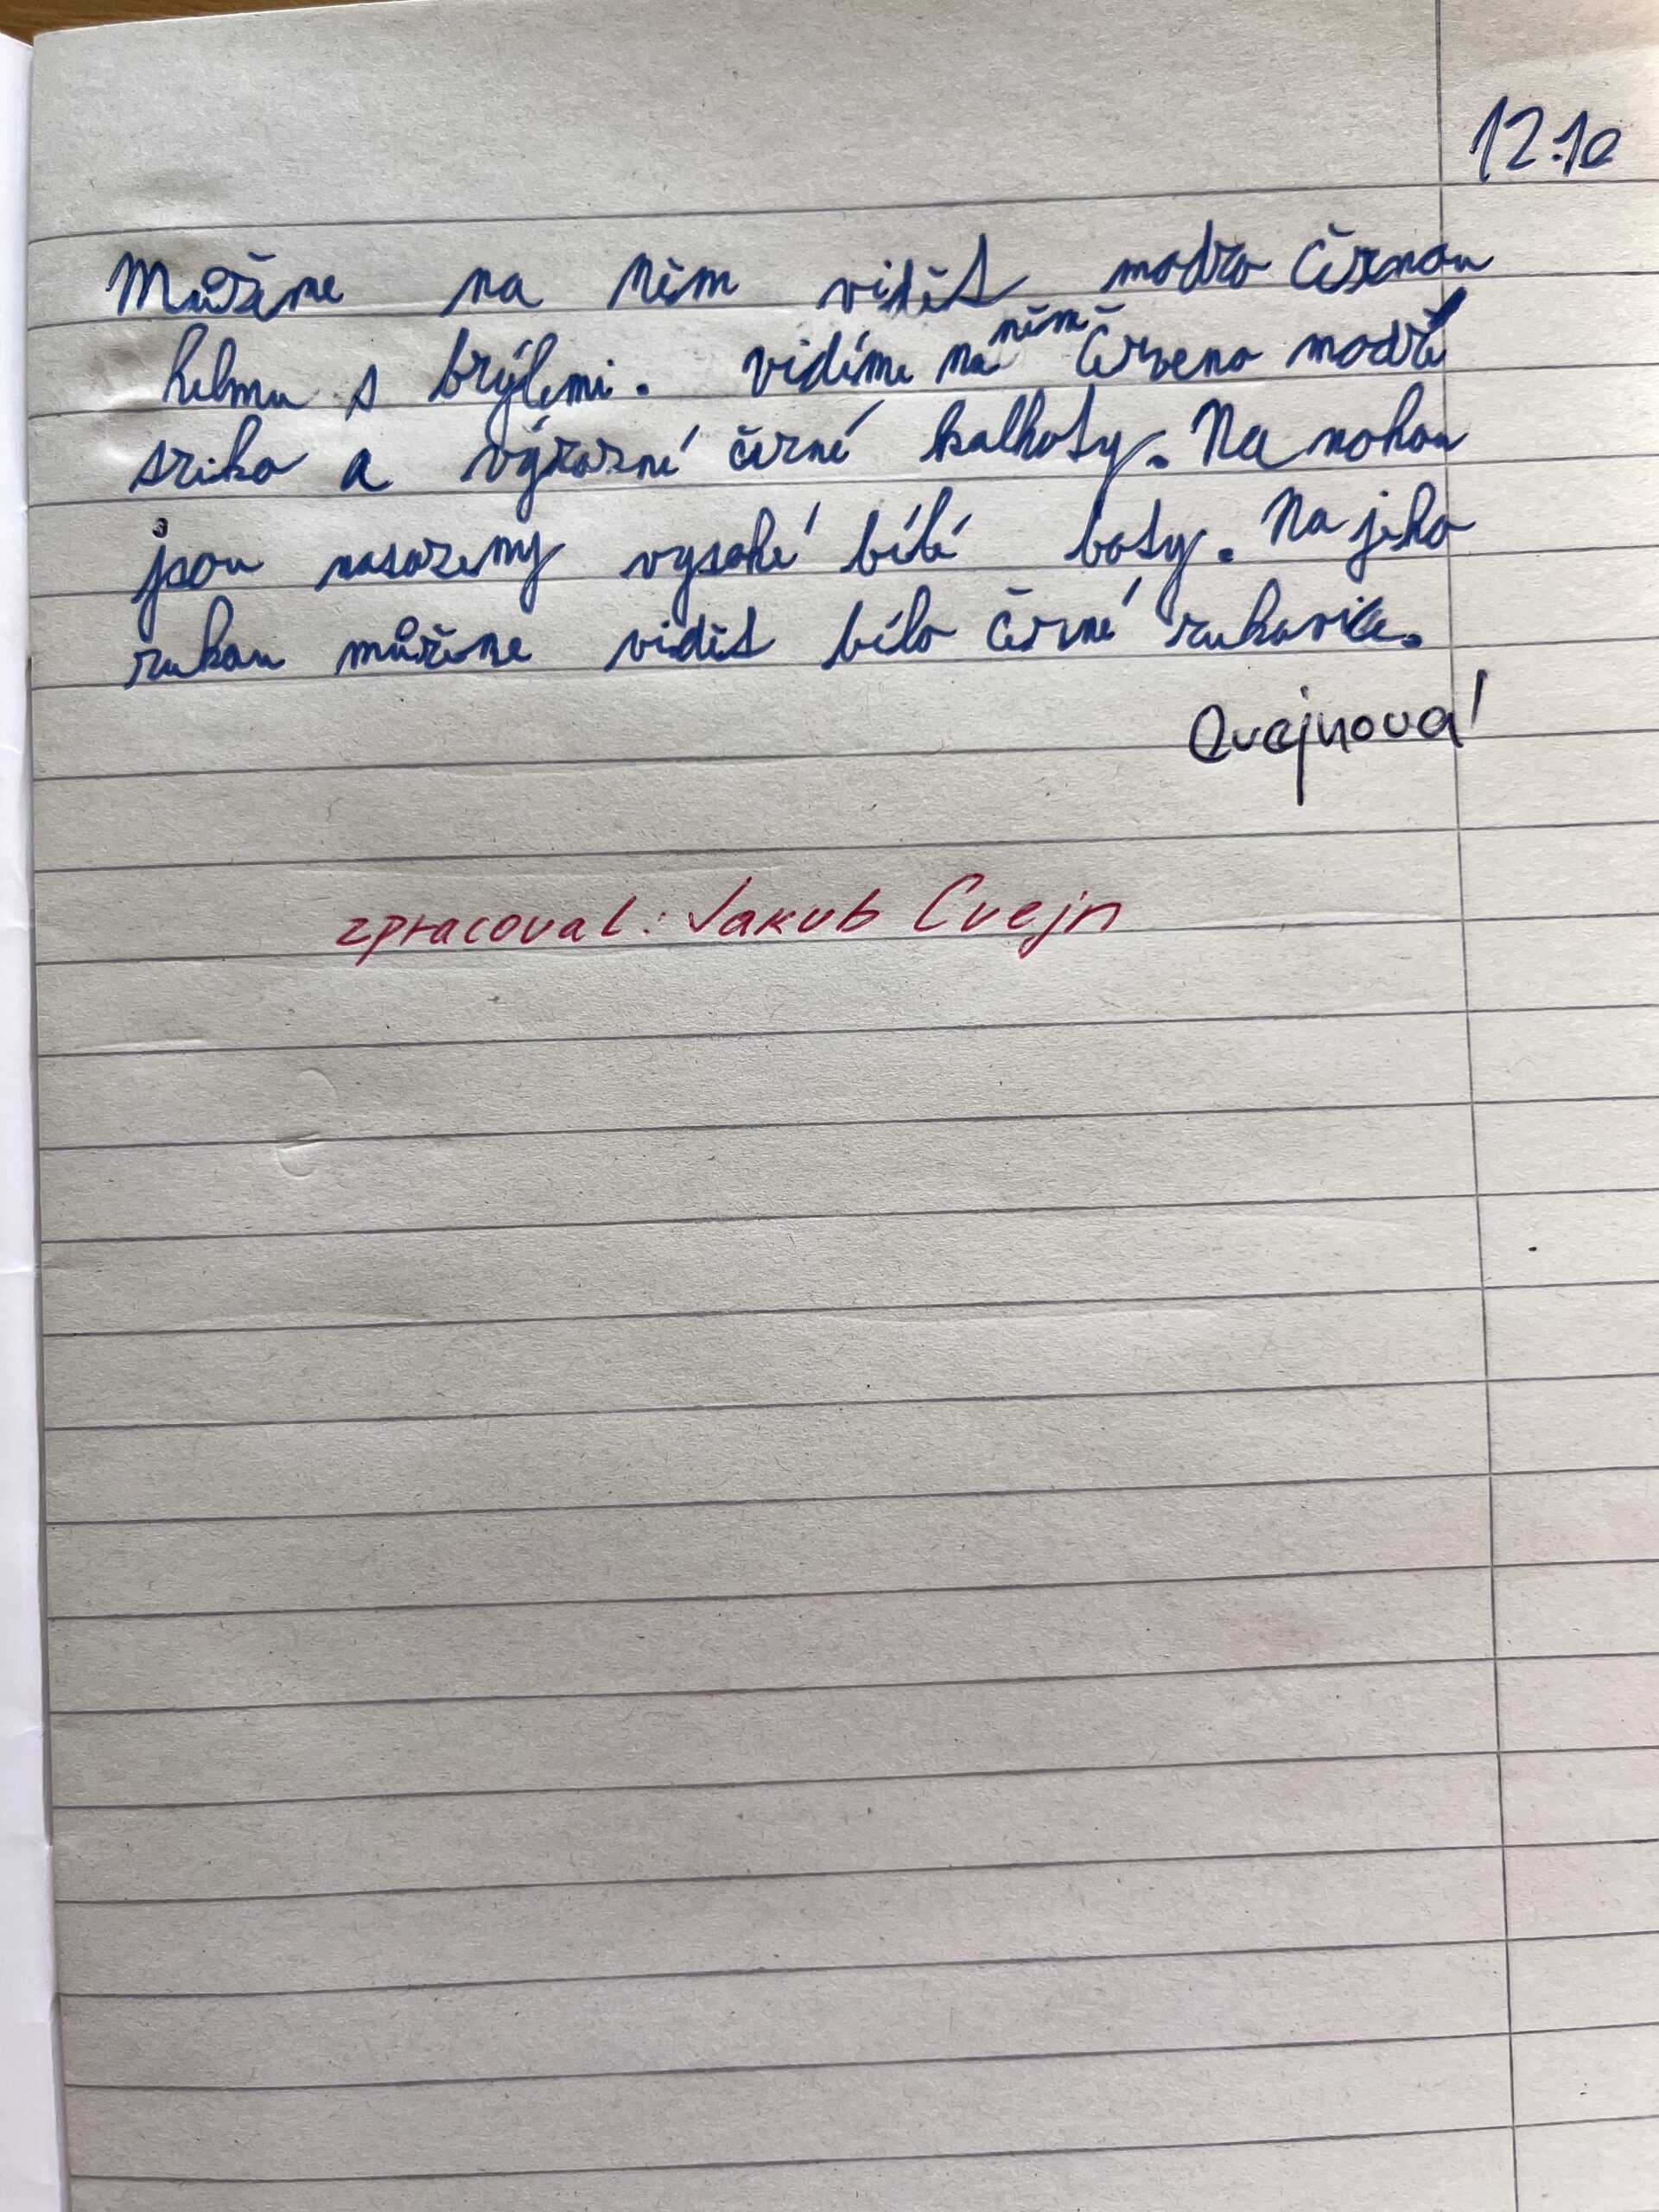 12.10
Můžeme na něm vidět modro černou
helmu s brýlemi. vidíme na něm červeno modré
triko a výrazné černé kalhoty. Na nohou
jsou nasazeny vysoké bílé boty. Na jeho
rukou můžeme vidět bílo černé rukavice.
Cvejnová
zpracoval: Jakub Cvejn